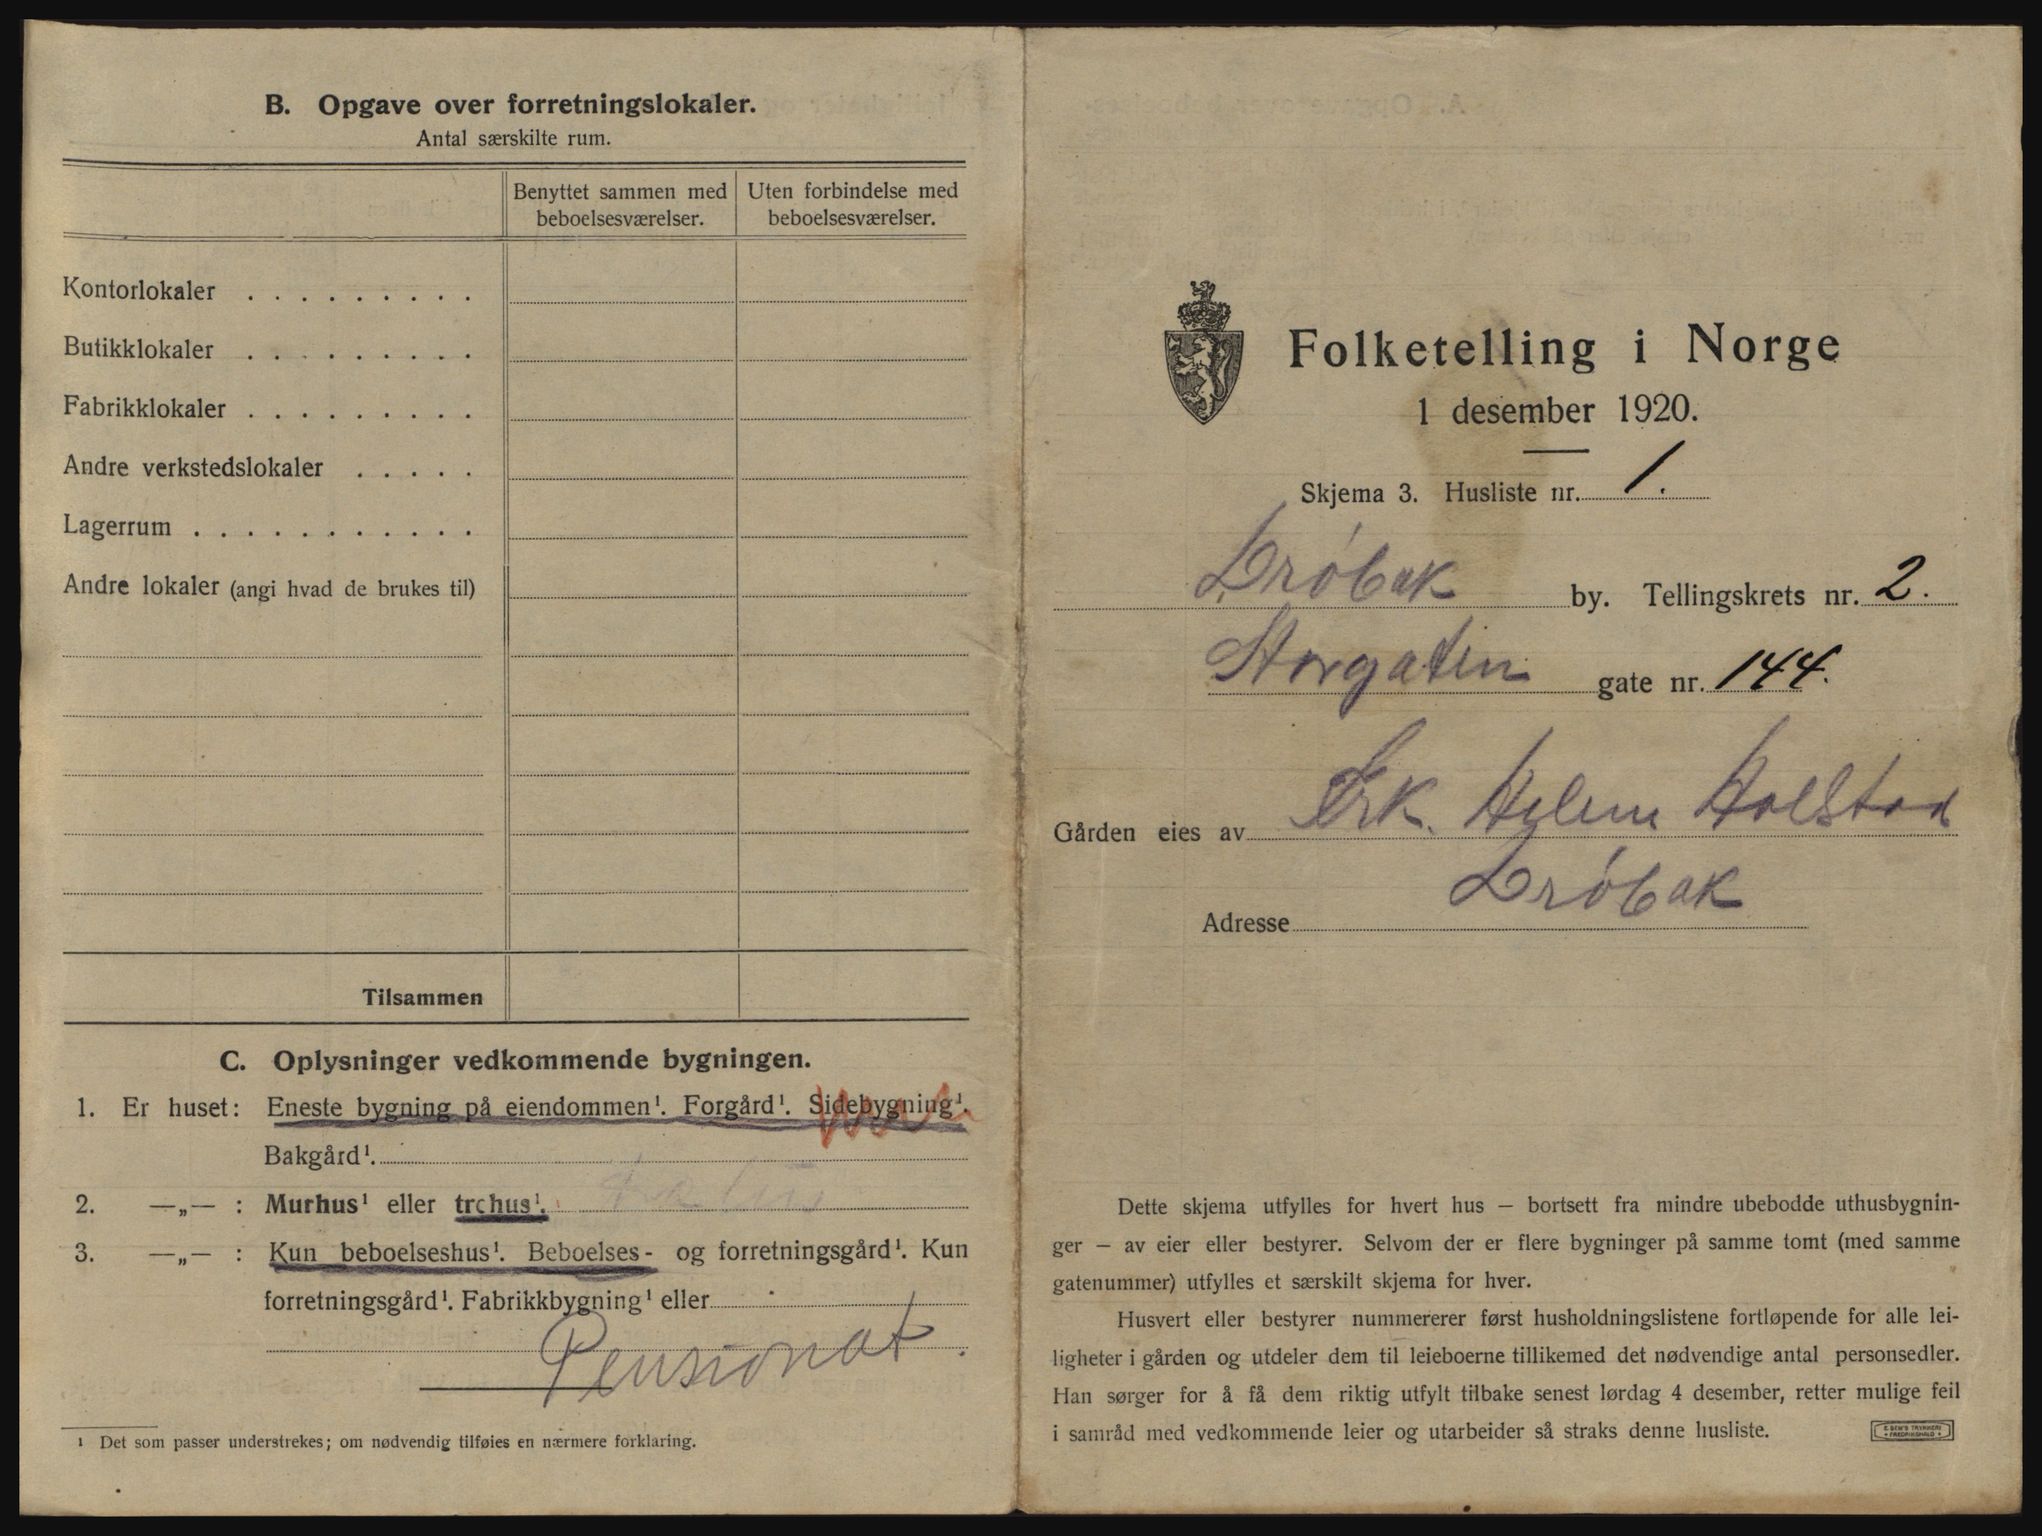 B. Opgave over forretningslokaler.
Antal særskilte rum.
Benyttet sammen med beboelsesværelser.
Uten forbindelse med beboelsesværelser.
Kontorlokaler . . . . . . . . .
Butikklokaler . . . . . . . . .
Fabrikklokaler . . . . . . . . .
Andre verkstedslokaler . . . . .
Lagerrum . . . . . . . . . . .
Andre lokaler (angi hvad de brukes til)
Tilsammen
C. Oplysninger vedkommende bygningen.
1. Er huset: Eneste bygning på eiendommen¹. Forgård¹. Sidebygning¹.
Bakgård¹.
2. —„— : Murhus¹ eller trehus¹.
3. —„— : Kun beboelseshus¹. Beboelses- og forretningsgård¹. Kun
forretningsgård¹. Fabrikkbygning¹ eller
Pensionat.
¹ Det som passer understrekes; om nødvendig tilføies en nærmere forklaring.
Folketelling i Norge
1 desember 1920.
Skjema 3. Husliste nr. 1.
Drøbak by. Tellingskrets nr. 2.
Storgaten gate nr. 144.
Gården eies av Frk. Helene Holstad
Adresse Drøbak
Dette skjema utfylles for hvert hus — bortsett fra mindre ubebodde uthusbygnin-
ger — av eier eller bestyrer. Selvom der er flere bygninger på samme tomt (med samme
gatenummer) utfylles et særskilt skjema for hver.
Husvert eller bestyrer nummererer først husholdningslistene fortløpende for alle lei-
ligheter i gården og utdeler dem til leieboerne tillikemed det nødvendige antal personsedler.
Han sørger for å få dem riktig utfylt tilbake senest lørdag 4 desember, retter mulige feil
i samråd med vedkommende leier og utarbeider så straks denne husliste.